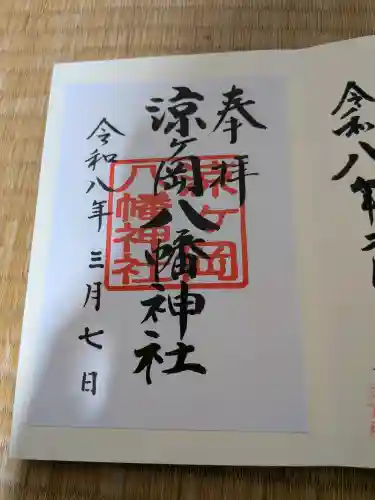 令和八年
奉拝
涼ヶ岡八幡神社
涼ヶ岡
八幡神社
令和八年三月七日